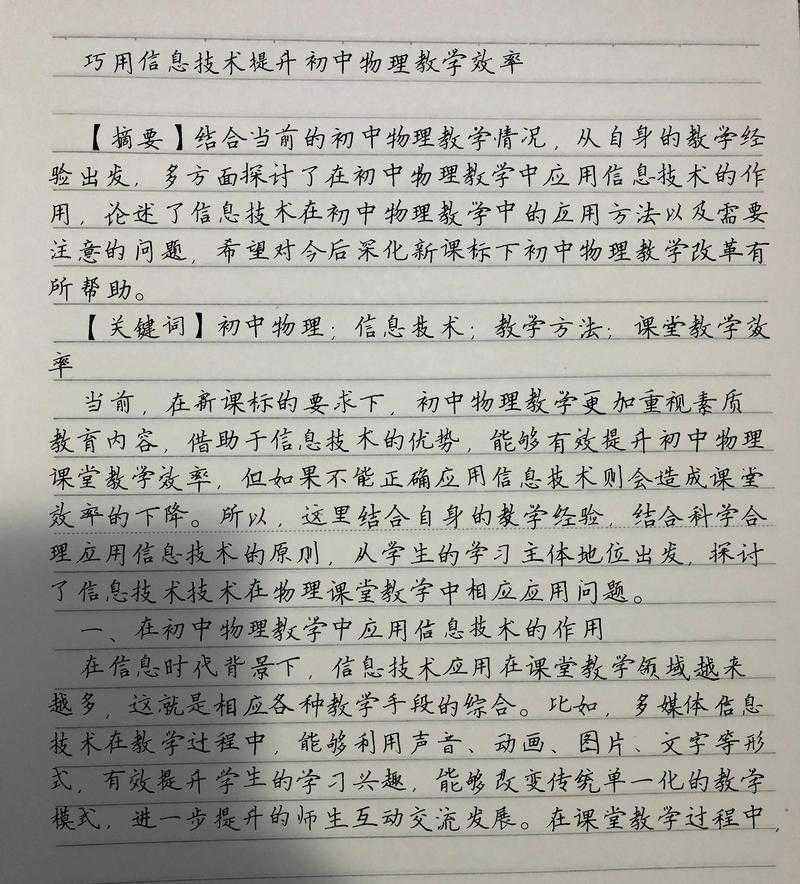 巧用信息技术提升初中物理教学效率
【摘要】结合当前的初中物理教学情况，从自身的教学经
验出发，多方面探讨了在初中物理教学中应用信息技术的作
用，论述了信息技术在初中物理教学中的应用方法以及需要
注意的问题，希望对今后深化新课标下初中物理教学改革有
所帮助。
【关键词】初中物理；信息技术；教学方法；课堂教学效
率
当前，在新课标的要求下，初中物理教学更加重视素质
教育内容，借助于信息技术的优势，能够有效提升初中物理
课堂教学效率，但如果不能正确应用信息技术则会造成课堂
效率的下降。所以，这里结合自身的教学经验，结合科学合
理应用信息技术的原则，从学生的学习主体地位出发，探讨
了信息技术技术在物理课堂教学中相应应用问题。
一、在初中物理教学中应用信息技术的作用
在信息时代背景下，信息技术应用在课堂教学领域越来
越多，这就是相应各种教学手段的综合。比如，多媒体信息
技术在教学过程中，能够利用声音、动画、图片、文字等形
式，有效提升学生的学习兴趣，能够改变传统单一化的教学
模式，进一步提升的师生互动交流发展。在课堂教学过程中，